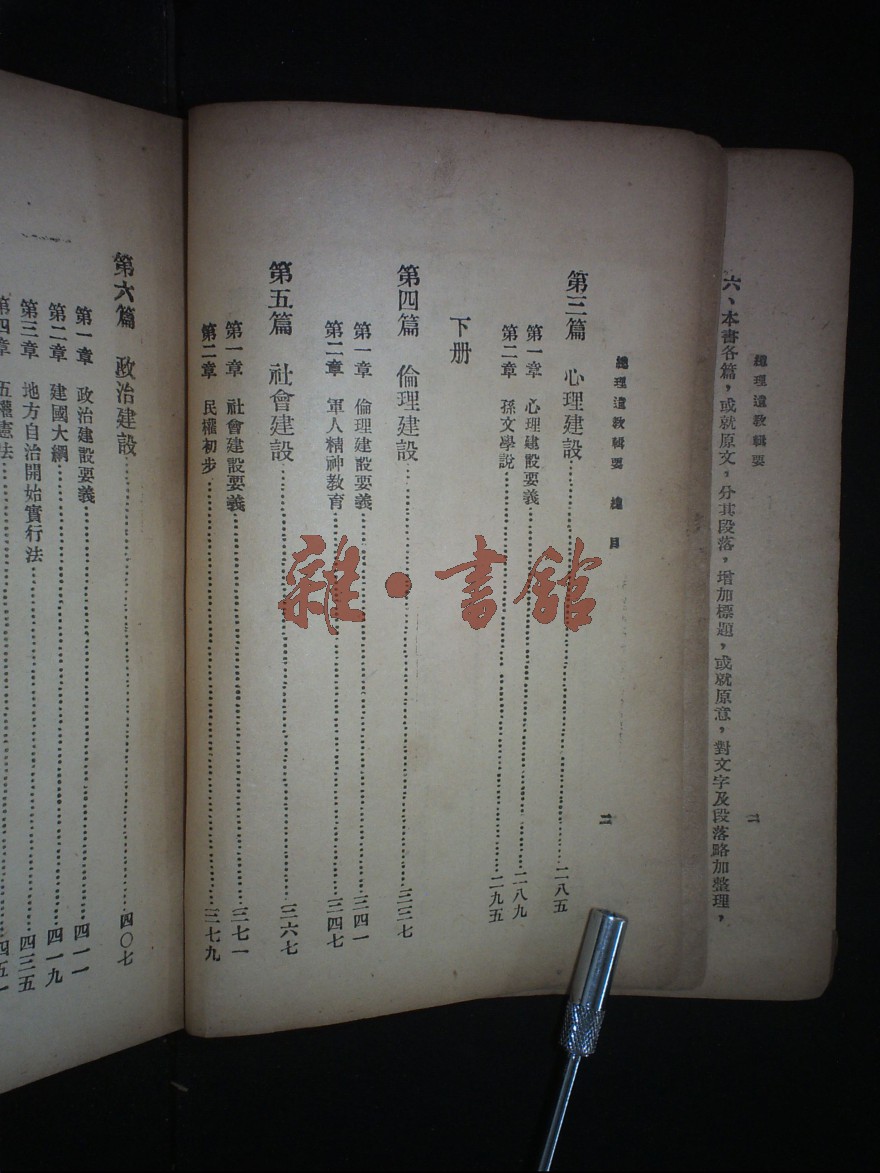 總理遺教輯要
二
六、本書各篇，或就原文，分其段落，增加標題，或就原意，對文字及段落略加整理，
總理遺教輯要 總目
二
第三篇 心理建設……二八五
第一章 心理建設要義……二八九
第二章 孫文學說……二九五
下册
第四篇 倫理建設……三三七
第一章 倫理建設要義……三四一
第二章 軍人精神教育……三四七
第五篇 社會建設……三六七
第一章 社會建設要義……三七一
第二章 民權初步……三七九
第六篇 政治建設……四〇七
第一章 政治建設要義……四一一
第二章 建國大綱……四一九
第三章 地方自治開始實行法……四三五
第四章 五權憲法……四五一
雜·書館